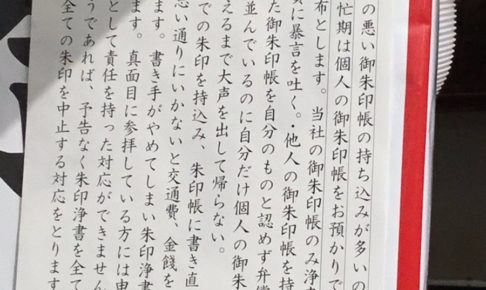 の悪い御朱印帳の持ち込みが多いの
忙期は個人の御朱印帳をお預かりで
布とします。当社の御朱印帳のみ浄
に暴言を吐く。・他人の御朱印帳を持
た御朱印帳を自分のものと認めず弁償
並んでいるのに自分だけ個人の御朱
えるまで大声を出して帰らない。
での朱印を持込み、朱印帳に書き直
思い通りにいかないと交通費、金銭を
ます。書き手がやめてしまい朱印浄書
ます。真面目に参拝している方には申
として責任を持った対応ができません
うであれば、予告なく朱印浄書を全て
全ての朱印を中止する対応をとります